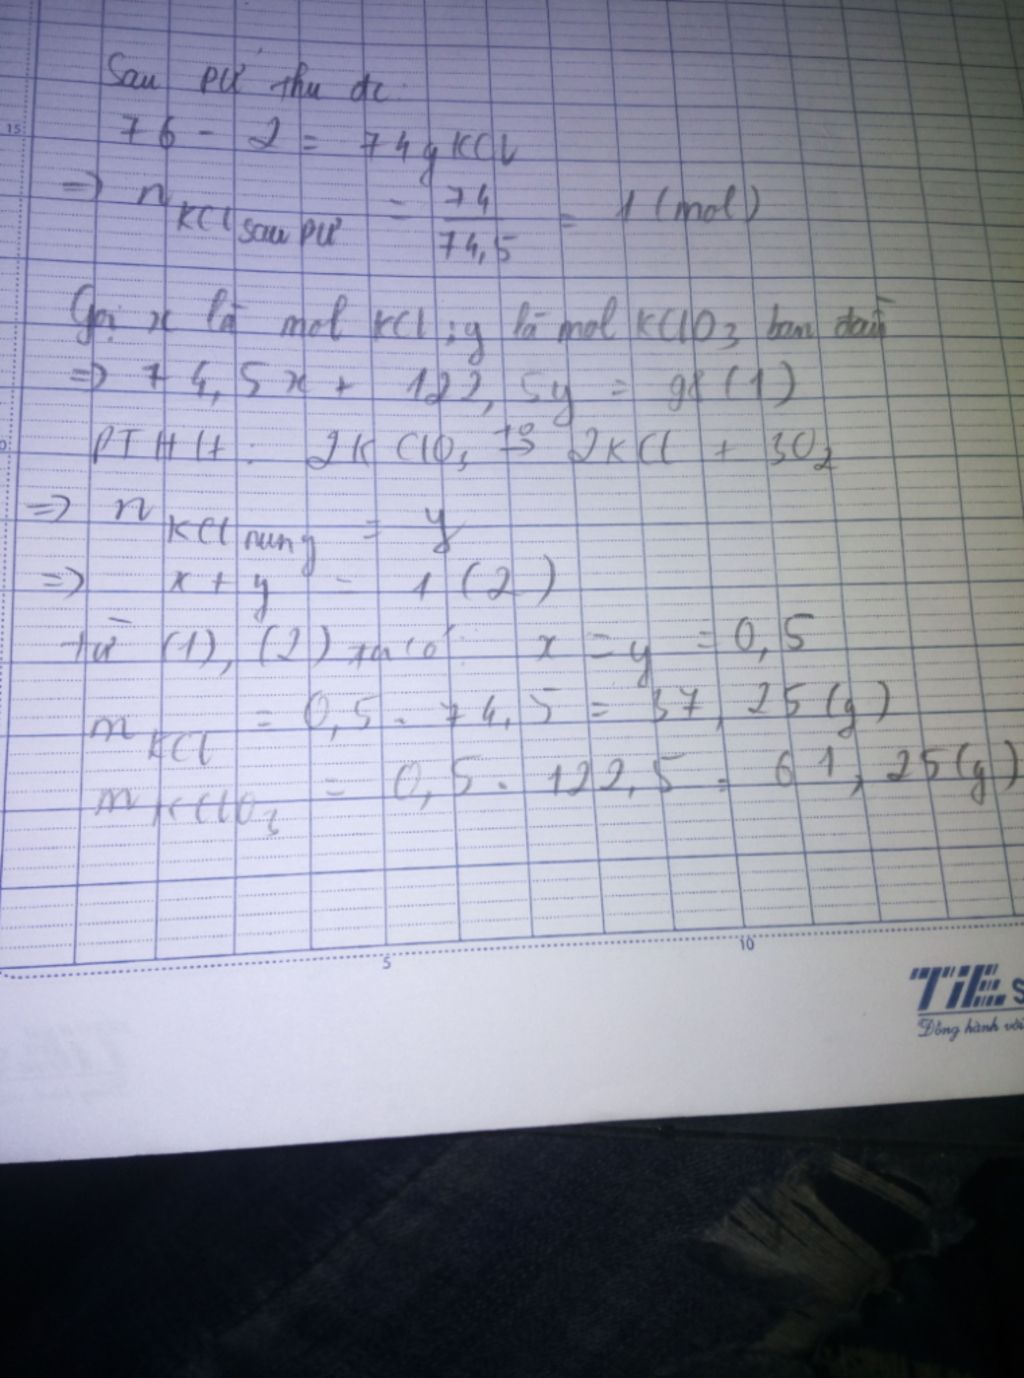 Sau PƯ thu đc:
76 - 2 = 74g KCl
=> n KCl sau PƯ = 74/74,5 = 1 (mol)
Gọi x là mol KCl ; y là mol KClO3 ban đầu
=> 74,5x + 122,5y = 98 (1)
PTHH: 2KClO3 t°→ 2KCl + 3O2
=> n KCl nung = y
=> x + y = 1 (2)
Từ (1), (2) ta có: x = y = 0,5
m KCl = 0,5 . 74,5 = 37,25 (g)
m KClO3 = 0,5 . 122,5 = 61,25 (g)
15
5
10
TiE
Đồng hành